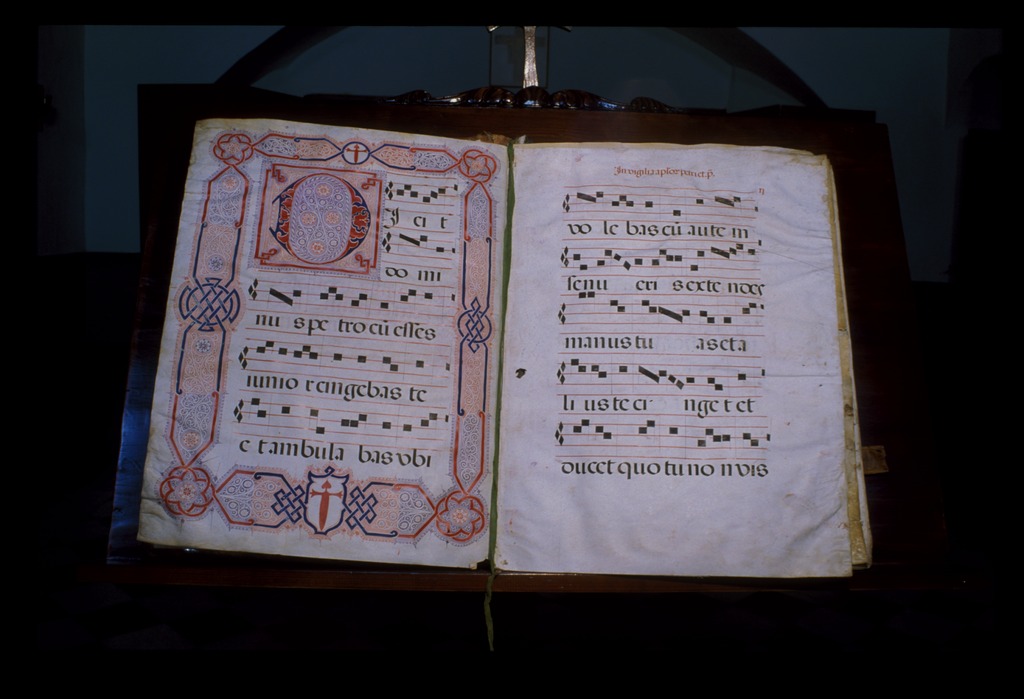 D
I ci t
do mi
nu s pe tro cū esses
iunio r cingebas te
e t ambula bas vbi
In vigilia
vo le bas cū aute m
senu eri s exte ndes
manus tu as et a
li us te ci nge t et
ducet quo tu no n vis